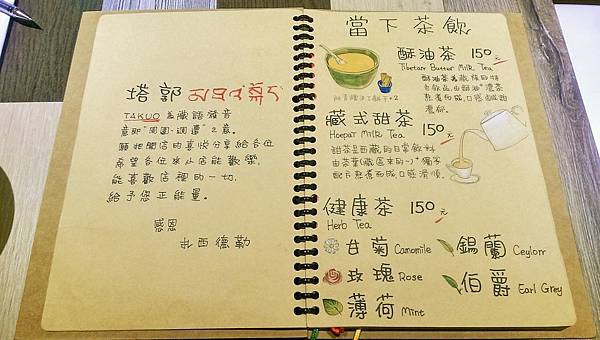 塔郭
TAKUO為藏語發音
意即"周圍·週遭"之意。
願把開店的喜悅分享給各位
希望各位來小店能歡聚,
能喜歡店裡的一切,
給予您正能量。
感恩
扎西德勒
當下茶飲
酥油茶 150元
Tibetan Butter Milk Tea
酥油茶是藏族的特
色飲品,由酥油、濃茶
熬煮而成,口感鹹甜
x2
藏式甜茶 150元
Hoepar Milk Tea
甜茶是西藏的日常飲料
由茶葉(藏區來的~)+獨家
配方熬煮而成,口感滑順。
健康茶 150元
Herb Tea
甘菊 Camomile
錫蘭 Ceylorr
玫瑰 Rose
伯爵 Earl Grey
薄荷 Mint